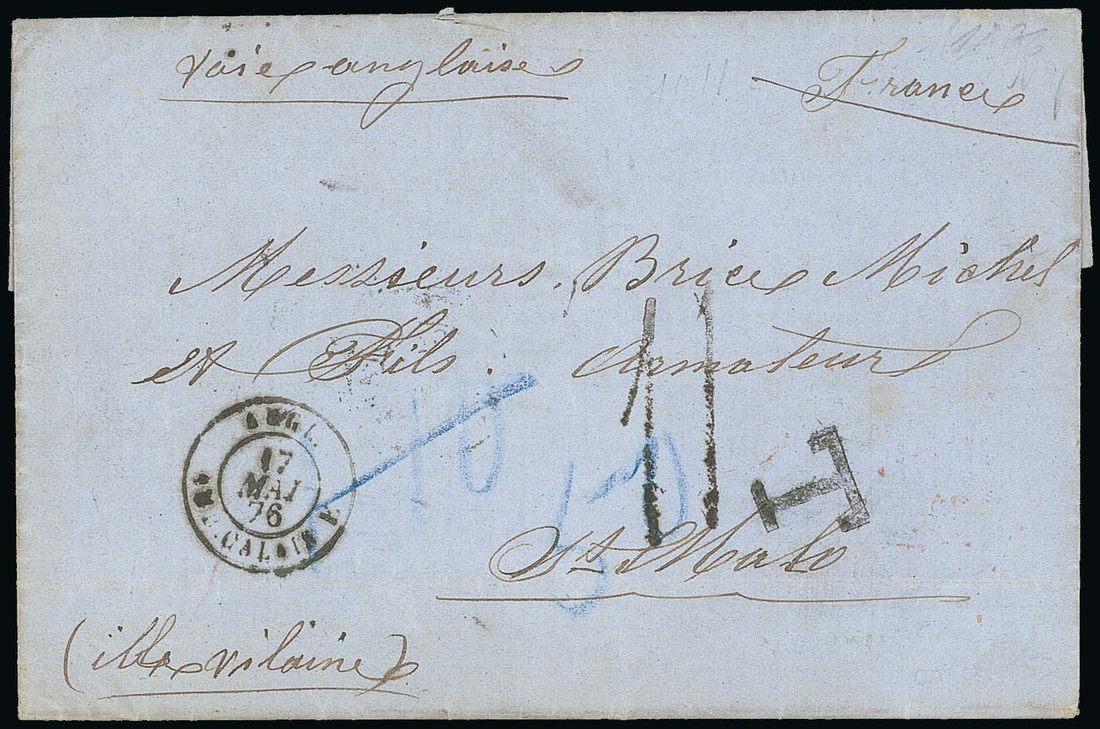 Voie anglaise
France
Messieurs. Brice Michel
et Fils. Armateurs
10
11
T
ANGL.
17
MAI
76
CALAIS
St. Malo
(ille vilaine)